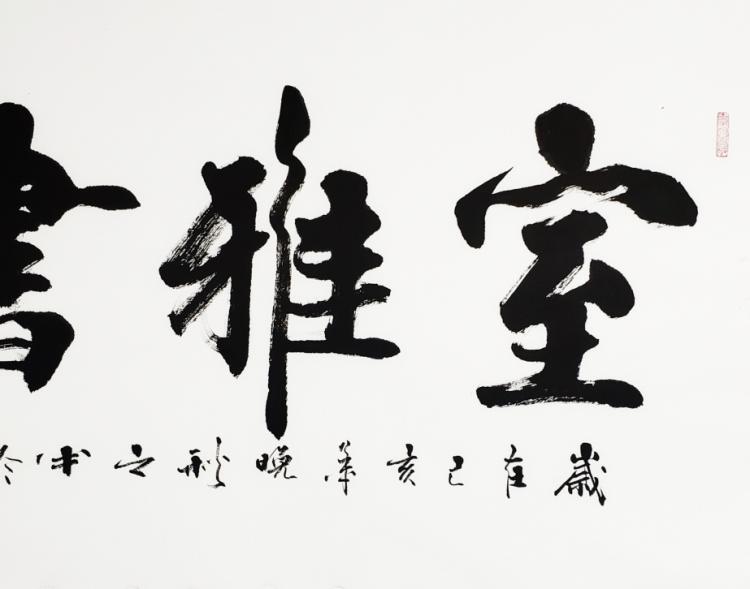 室雅書
歲在己亥年晚秋之